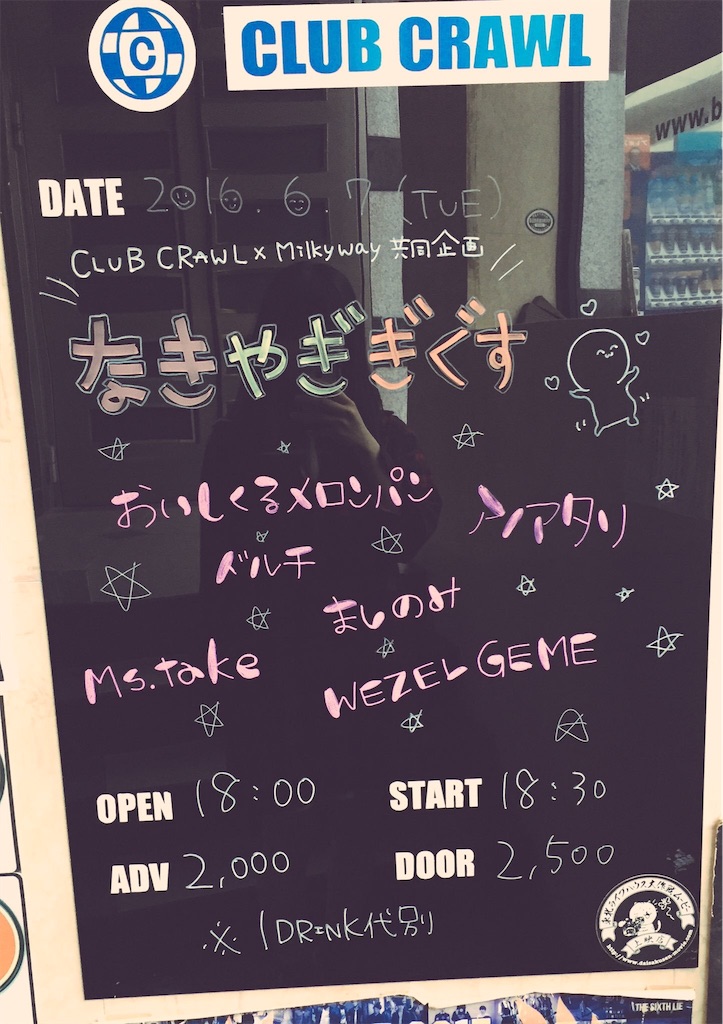 C
CLUB CRAWL
www.b
DATE 2016.6.7(TUE)
CLUB CRAWL×Milkyway 共同企画
なきやぎぎぐす
おいしくるメロンパン
ノンアタリ
ベルチ
ましのみ
Ms.take
WEZEL GEME
OPEN 18:00 START 18:30
ADV 2,000 DOOR 2,500
※1DRINK代別
上映店
THE SIXTH LIE